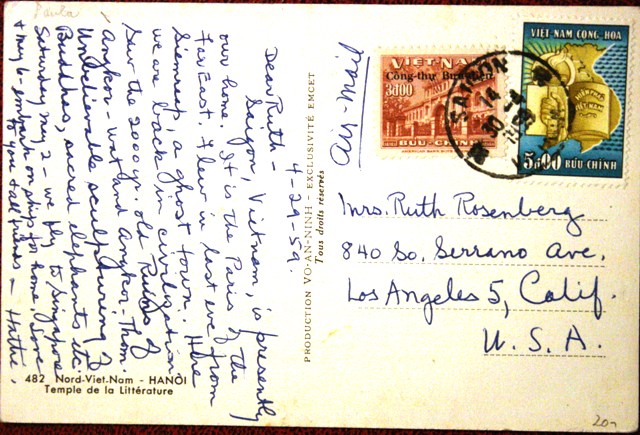 Paula
4-29-59.
Dear Ruth -
Saigon, Vietnam, is presently
our home. It is the Paris of the
Far East. Flew in last eve from
Siemreap, a ghost town. Here
we are back in civilization.
Saw the 2000 yr. old Ruins of
Angkor-Wat and Angkor-Thom.
Unbelievable sculpturing of
Buddhas, sacred elephants etc.
Saturday May 2 - we fly to Singapore
& May 6 - embark on ship for home. Love
to you & all friends - Hattie.
482 Nord-Viet-Nam - HANÔI
Temple de la Littérature
PRODUCTION VO-AN-NINH - EXCLUSIVITÉ EMCET
Tous droits réservés
air-mail
VIET-NAM
Công-thự Bưu-điện
3đ00
BƯU-CHÍNH
SAIGON
14
30
VIỆT-NAM CỘNG-HÒA
HIẾN-PHÁP
VIỆT-NAM
5đ00 BƯU CHÍNH
Mrs. Ruth Rosenberg
840 So. Serrano Ave.
Los Angeles 5, Calif.
U.S.A.
20-